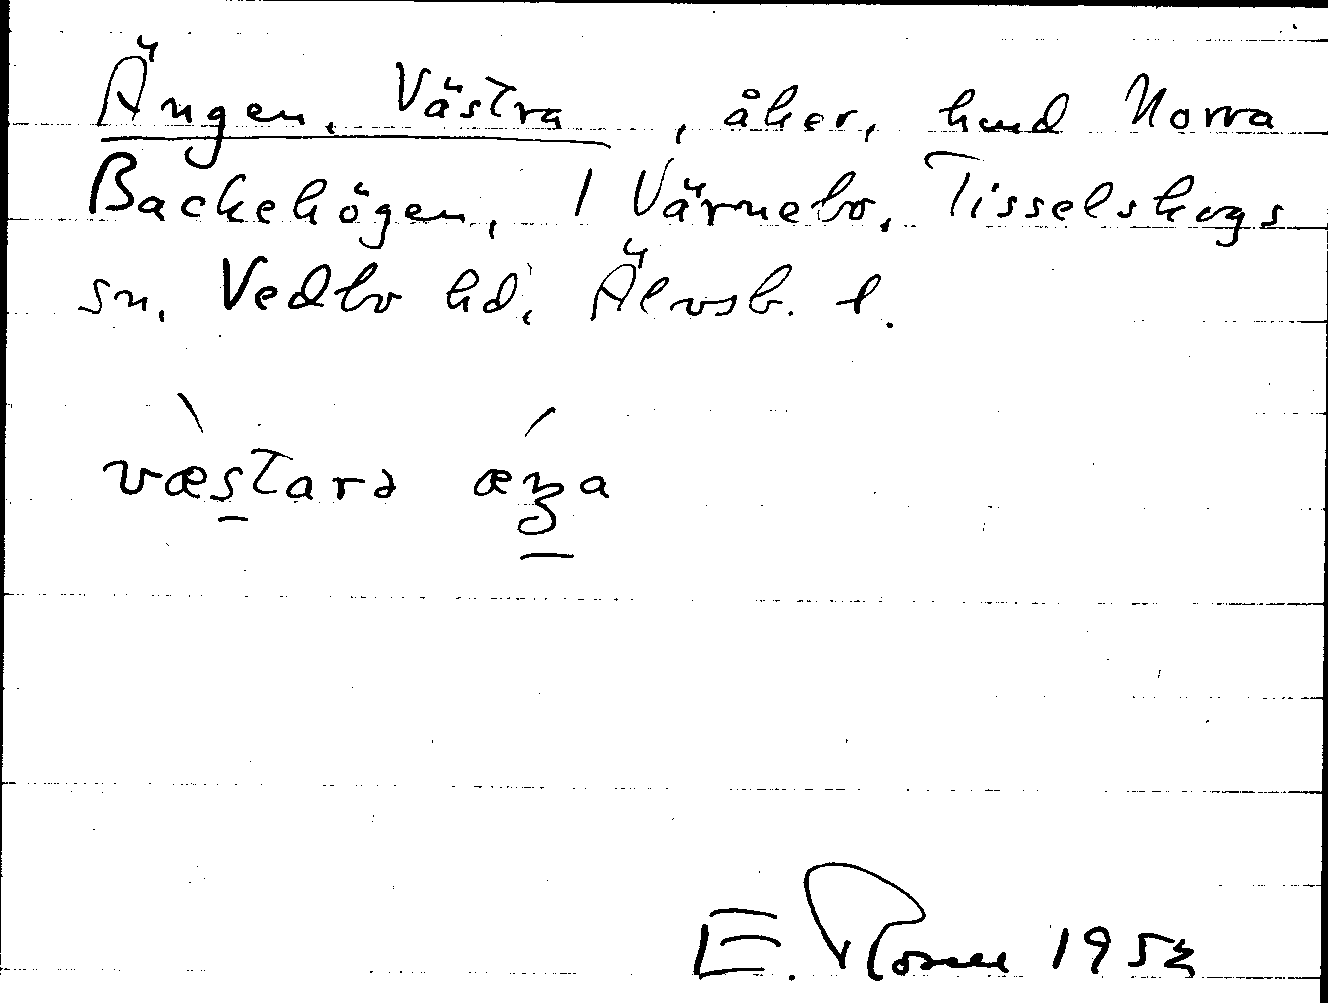 Ängen, Västra, åker, hmd Norra
Backehögen, 1 Värnebo, Tisselskogs
sn, Vedbo hd, Älvsb. l.
væstarə æŋa
E. 195